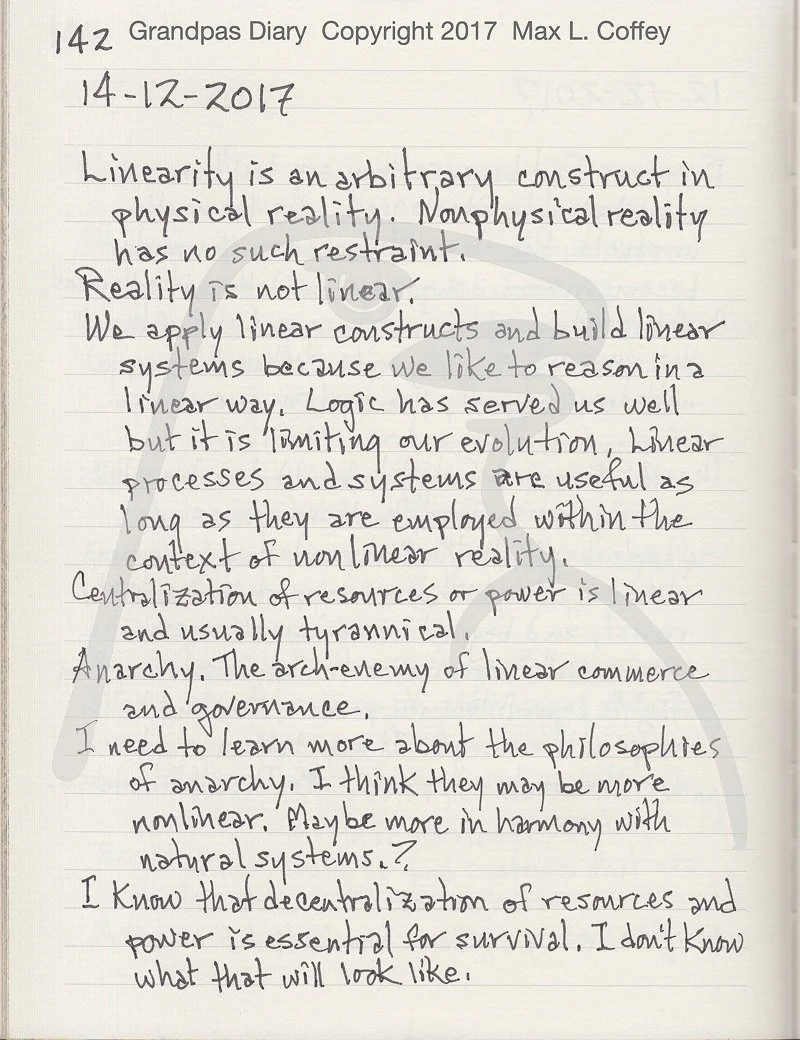 142 Grandpas Diary Copyright 2017 Max L. Coffey
14-12-2017
Linearity is an arbitrary construct in
physical reality. Nonphysical reality
has no such restraint.
Reality is not linear.
We apply linear constructs and build linear
systems because we like to reason in a
linear way. Logic has served us well
but it is limiting our evolution. Linear
processes and systems are useful as
long as they are employed within the
context of nonlinear reality.
Centralization of resources or power is linear
and usually tyrannical.
Anarchy. The arch-enemy of linear commerce
and governance.
I need to learn more about the philosophies
of anarchy. I think they may be more
nonlinear. Maybe more in harmony with
natural systems.?
I know that decentralization of resources and
power is essential for survival. I don't know
what that will look like.